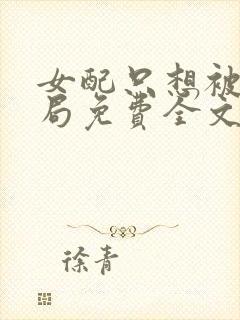 女配只想被
局免费全文
徐青